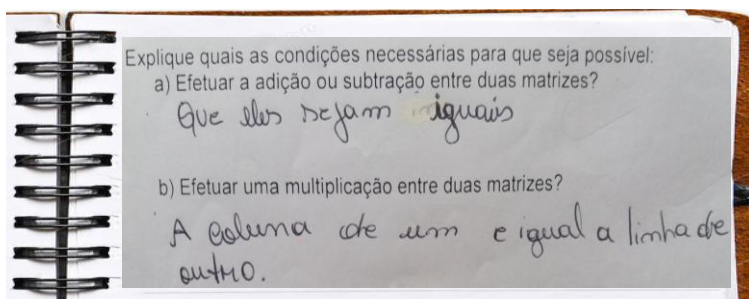 Explique quais as condições necessárias para que seja possível:
a) Efetuar a adição ou subtração entre duas matrizes?
Que eles sejam iguais
b) Efetuar uma multiplicação entre duas matrizes?
A coluna de um e igual a linha de
outro.